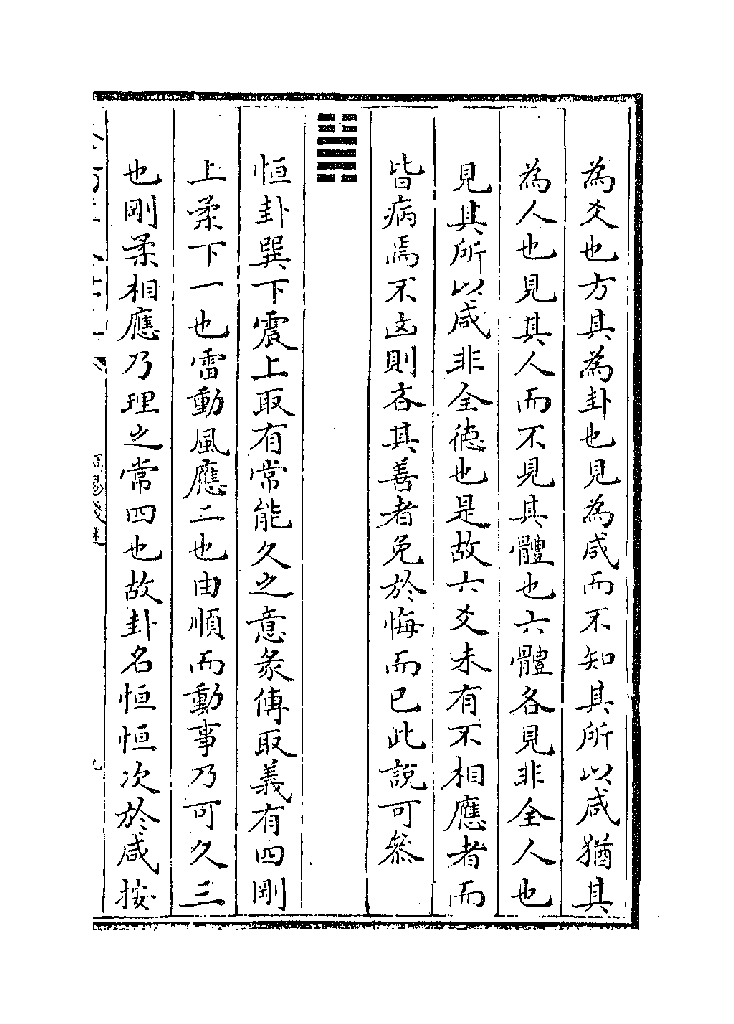 為爻也方其為卦也見為咸而不知其所以咸猶其
為人也見其人而不見其體也六體各見非全人也
見其所以咸非全德也是故六爻未有不相應者而
皆病焉不凶則吝其善者免於悔而已此說可參
䷟
恒卦巽下震上取有常能久之意彖傳取義有四剛
上柔下一也雷動風應二也由順而動事乃可久三
也剛柔相應乃理之常四也故卦名恒恒次於咸按